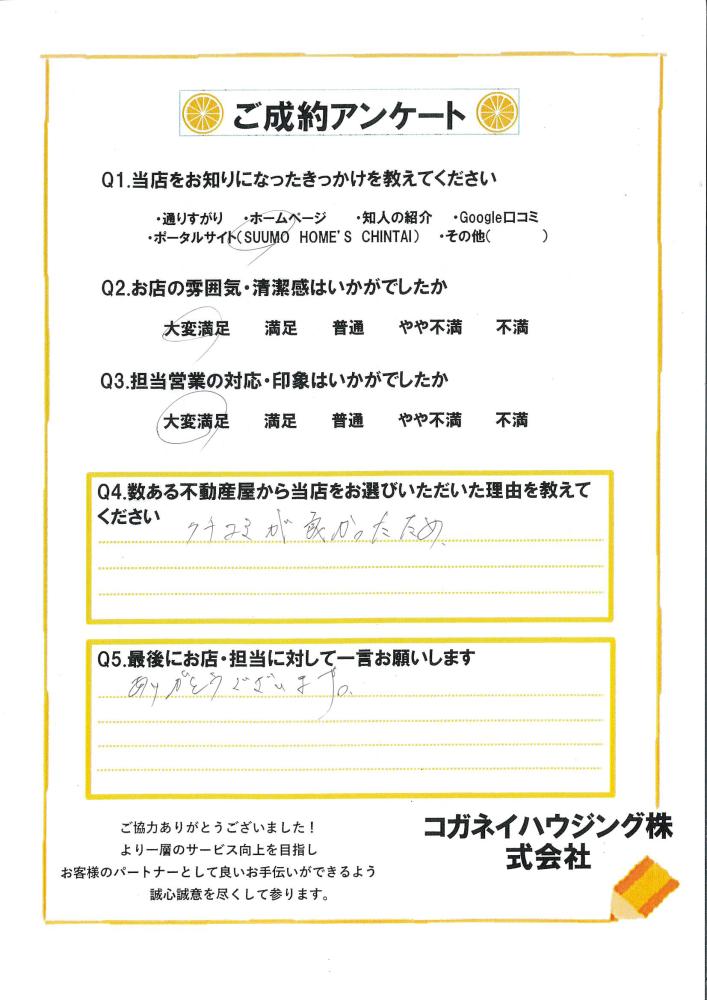 ご成約アンケート
Q1.当店をお知りになったきっかけを教えてください
・通りすがり ・ホームページ ・知人の紹介 ・Google口コミ
・ポータルサイト(SUUMO HOME'S CHINTAI) ・その他( )
Q2.お店の雰囲気・清潔感はいかがでしたか
大変満足 満足 普通 やや不満 不満
Q3.担当営業の対応・印象はいかがでしたか
大変満足 満足 普通 やや不満 不満
Q4.数ある不動産屋から当店をお選びいただいた理由を教えて
ください
クチコミが良かったため、
Q5.最後にお店・担当に対して一言お願いします
ありがとうございます。
ご協力ありがとうございました！
より一層のサービス向上を目指し
お客様のパートナーとして良いお手伝いができるよう
誠心誠意を尽くして参ります。
コガネイハウジング株
式会社